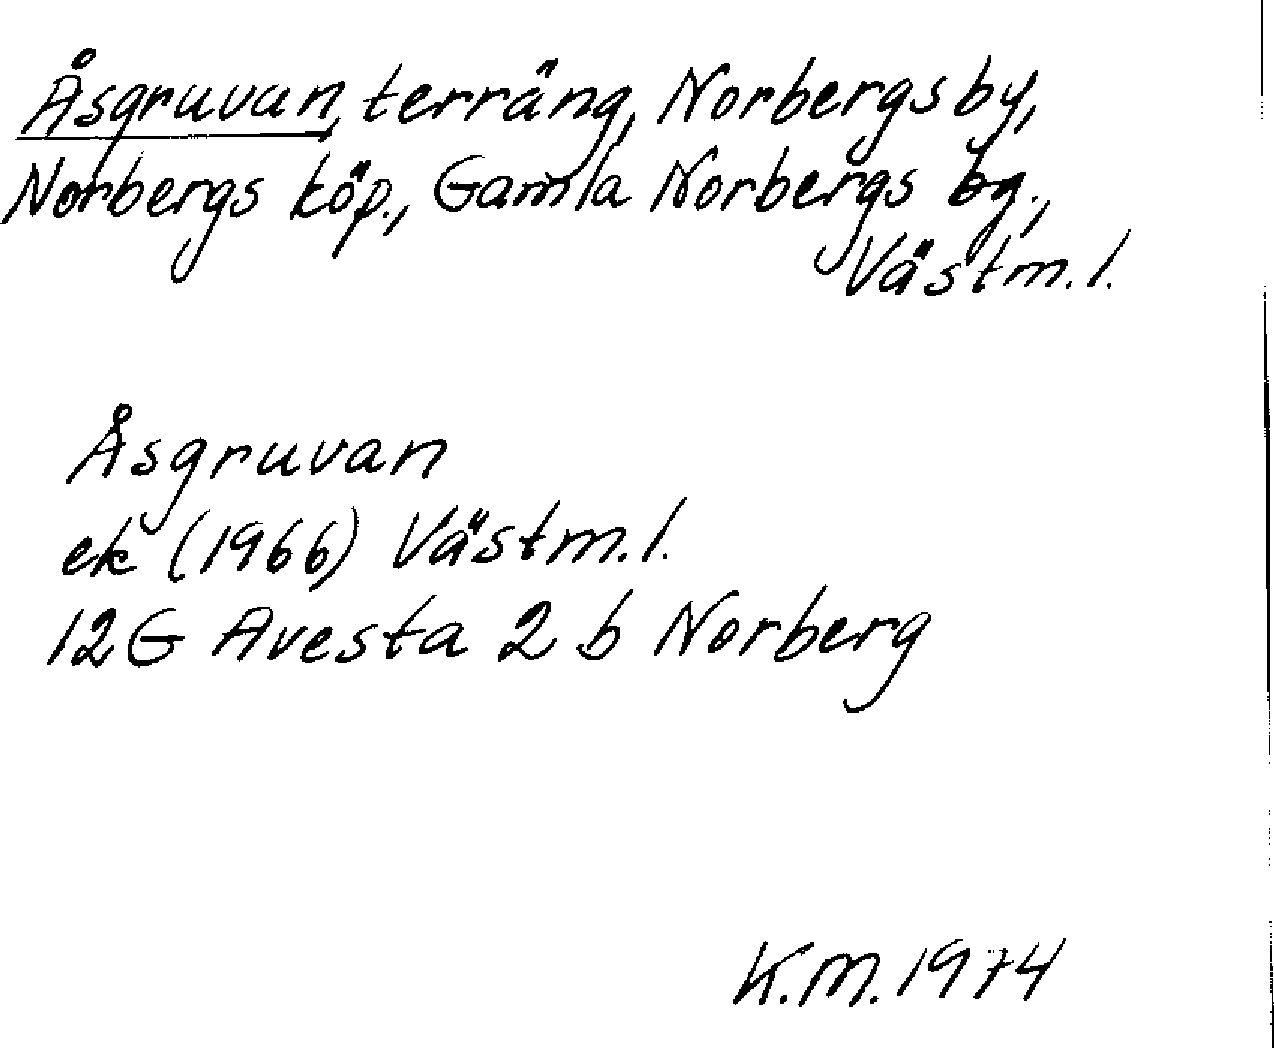 Åsgruvan, terräng, Norbergsby,
Norbergs köp., Gamla Norbergs bg.,
Västm.l.
Åsgruvan
ek (1966) Västm.l.
12G Avesta 2 b Norberg
K.M. 1974